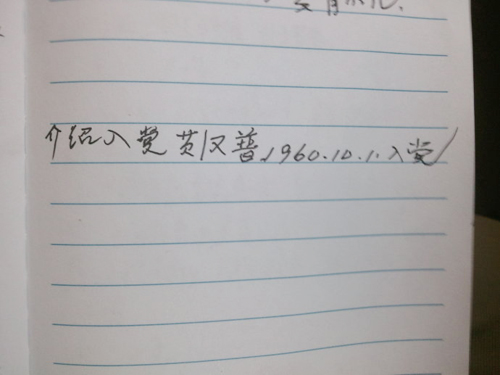 介绍入党 黄汉普、1960.10.1.入党